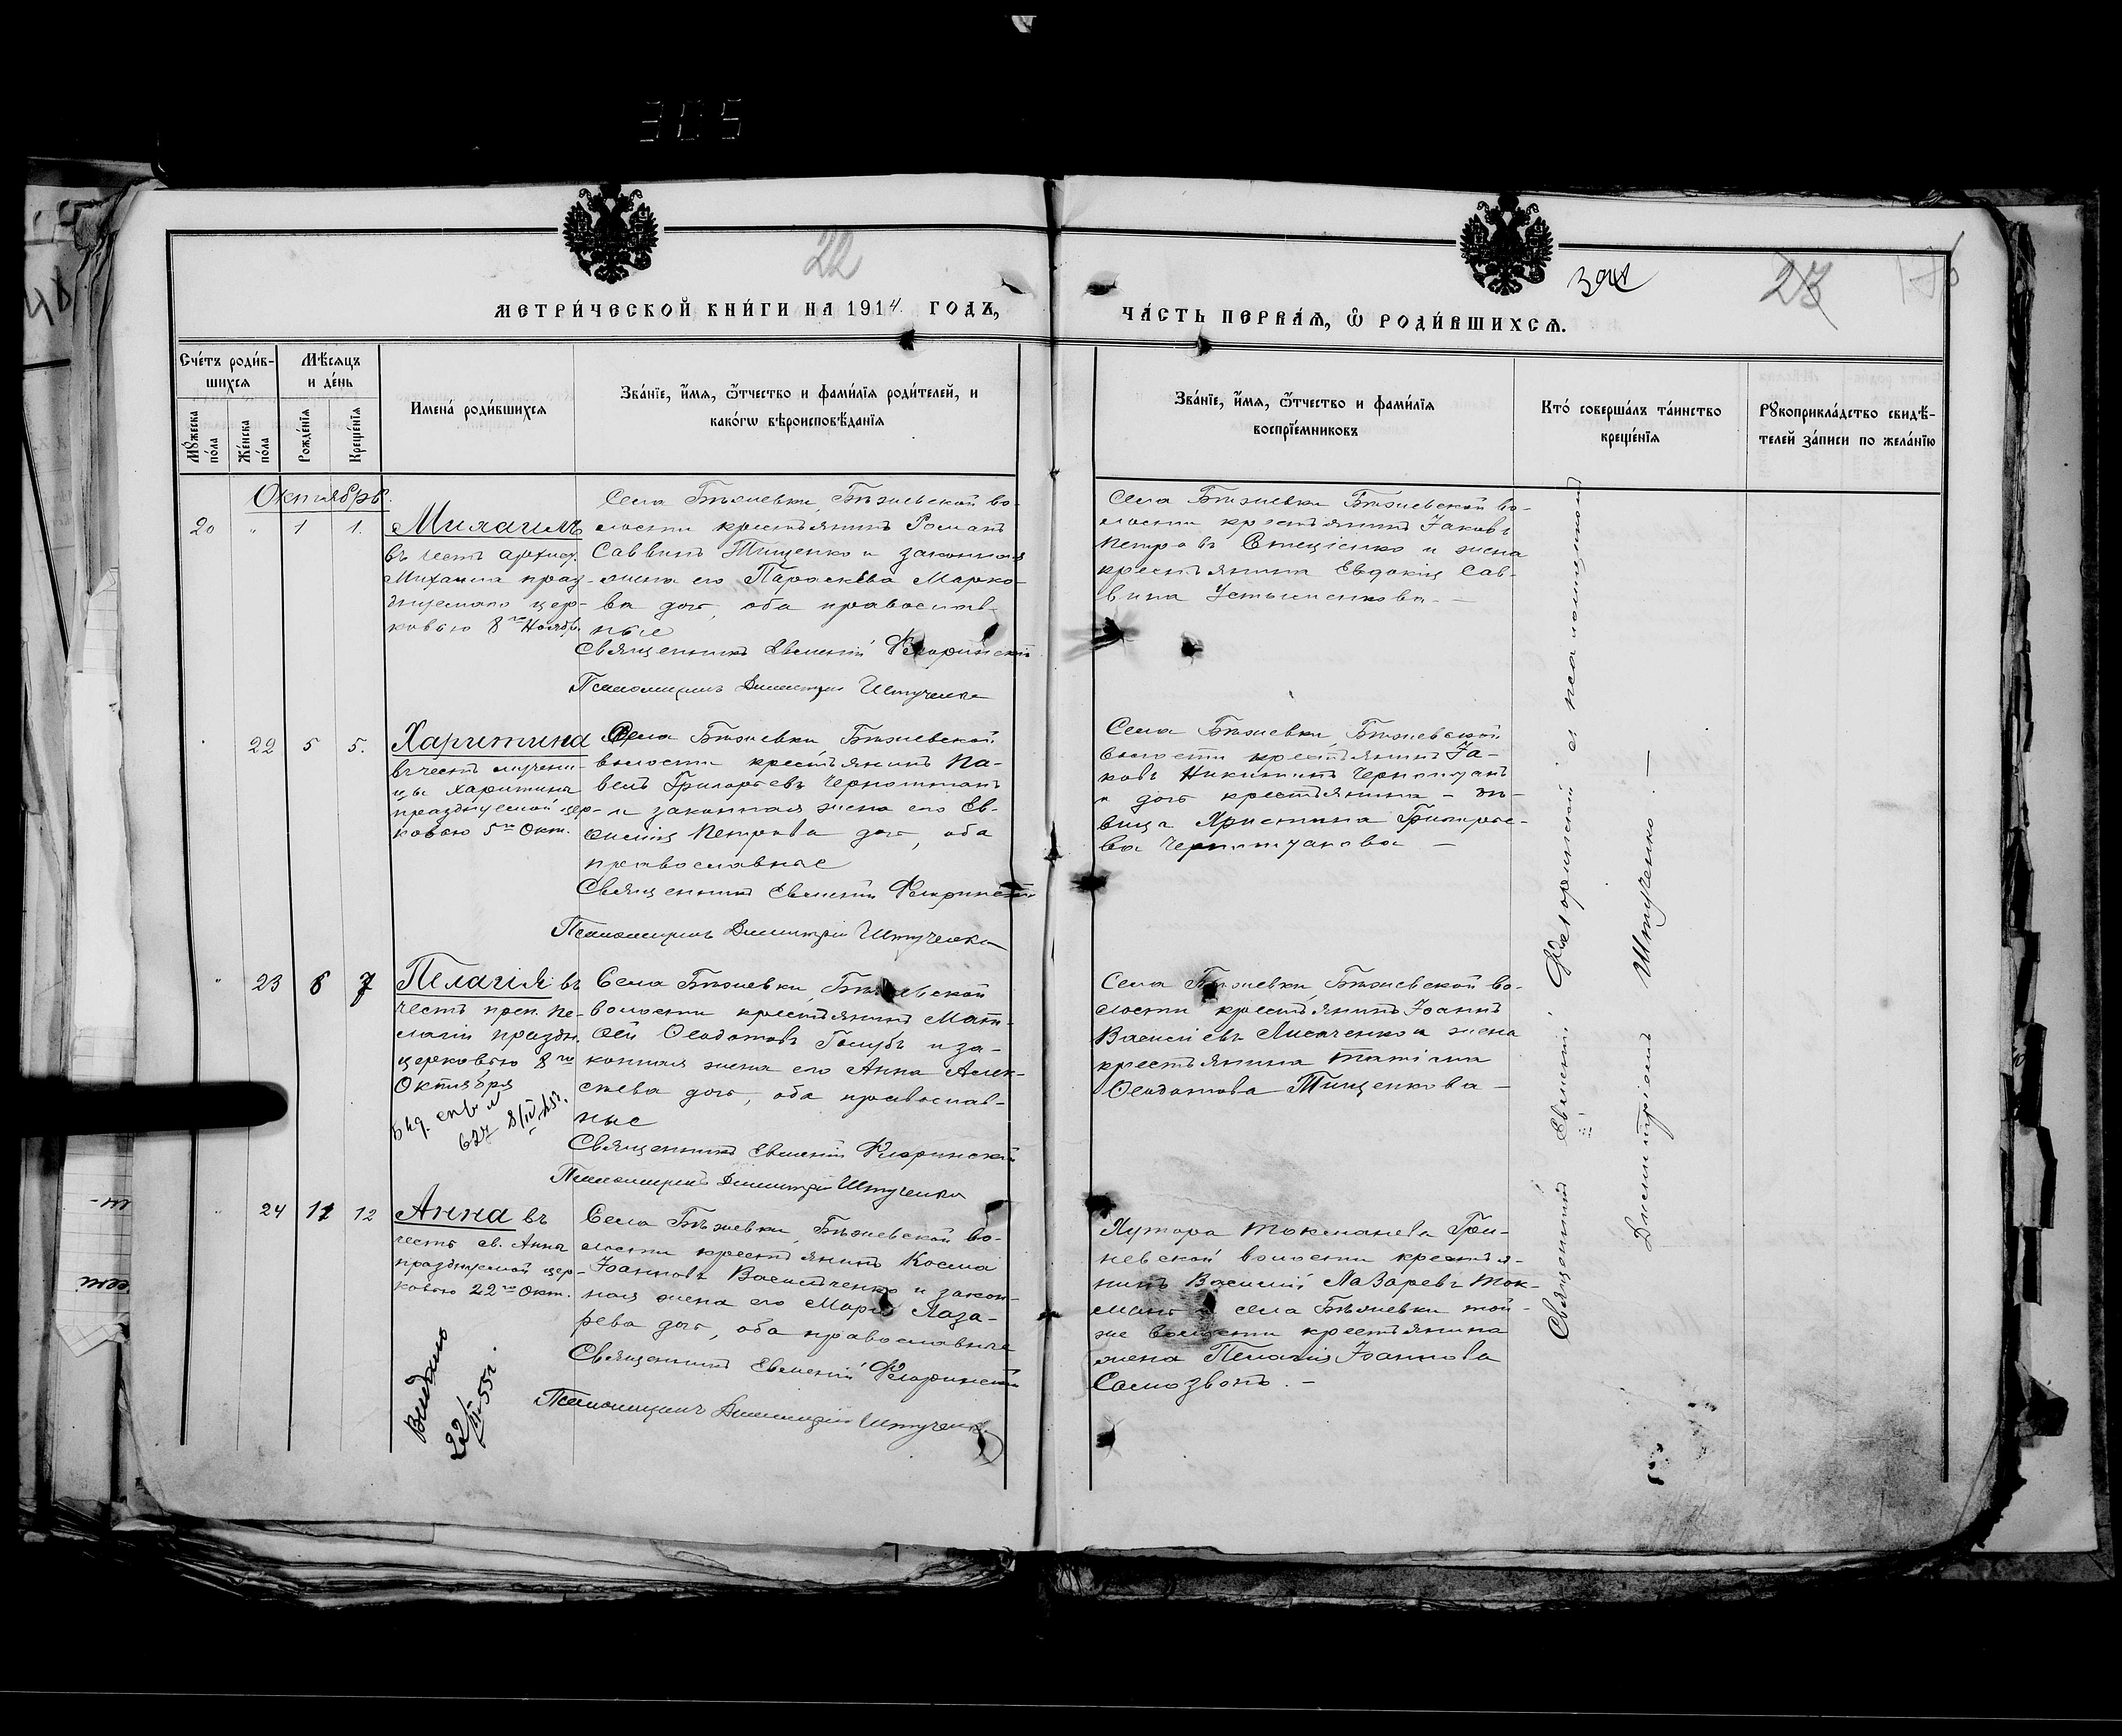 305
22
МЕТРИ́ЧЕСКОЙ КНИ́ГИ НА 1914 ГОДЪ,
Сче́тъ роди́в-
шихся
Мѣ́сяцъ
и де́нь
Мꙋ́жеска
по́ла
Же́нска
по́ла
Рожде́нїя
Креще́нїя
Имена̀ роди́вшихся
Зва́нїе, и҆́мя, ѻ҆́тчество и фами́лїя роди́телей, и
како́гѡ вѣроисповѣ́данїя
Октябрь.
20 " 1 1.
Михаилъ
въ честь архист.
Михаила празд-
днуемаго цер-
ковью 8го Ноябр.
Села Бѣжевки, Бѣжевской во-
лости крестьянинъ Романъ
Саввинъ Тищенко и законная
жена его Параскева Марко-
ва дочь, оба православ-
ные
Священникъ Евменій Флоринскій
Псаломщикъ Димитрій Штученко
22 5 5.
Харитина
въ честь мучени-
цы Харитина
празднуемой цер-
ковью 5го Окт.
Села Бѣжевки Бѣжевской
волости крестьянинъ Па-
велъ Григорьевъ Черноштанъ
и законная жена его Ев-
фимія Петрова дочь, оба
православные
Священникъ Евменій Флоринскій
Псаломщикъ Димитрій Штученко
" 23 6 7
Пелагія въ
честь преп. Пе-
лагіи праздн.
церковью 8го
Октября
627 8/IV-45г.
Села Бѣжевки, Бѣжевской
волости крестьянинъ Матѳ-
ѳей Ѳеодотовъ Голубъ и за-
конная жена его Анна Алек-
сѣева дочь, оба православ-
ные
Священникъ Евменій Флоринскій
Псаломщикъ Димитрій Штученко
" 24 11 12
Анна въ
честь св. Анна
празднуемой цер-
ковью 22го Окт.
Видано
22/III-55г.
Села Бѣжевки, Бѣжевской во-
лости крестьянинъ Косма
Іоанновъ Василченко и закон-
ная жена его Марія Лаза-
рева дочь, оба православные
Священникъ Евменій Флоринскій
Псаломщикъ Димитрій Штученко
23
ЧА́СТЬ ПЕ́РВАЯ, Ѡ҆ РОДИ́ВШИХСЯ.
Зва́нїе, и҆́мя, ѻ҆́тчество и фами́лїя
воспрїе́мниковъ
Кто̀ соверша́лъ та́инство
креще́нїя
Рꙋкоприкла́дство свидѣ́-
телей за́писи по жела́нїю
Села Бѣжевки Бѣжевской во-
лости крестьянинъ Іаковъ
Петровъ Стеціенко и жена
крестьянина Евдокія Сав-
вина Устименкова. —
Села Бѣжевки, Бѣжевской
волости крестьянинъ Іа-
ковъ Никитинъ Черноштанъ
и дочь крестьянина – дѣ-
вица Христина Григорье-
ва Черноштанова —
Села Бѣжевки, Бѣжевской во-
лости крестьянинъ Іоаннъ
Василіевъ Лисаченко и жена
крестьянина Татіана
Ѳеодотова Тищенкова —
Хутора Токманева Грі-
невской волости крестья-
нинъ Василій Лазаревъ Ток-
манъ и села Бѣжевки той-
же волости крестьянина
жена Пелагія Іоаннова
Самозвонъ. —
Священникъ Евменій Флоринскій и псаломщикъ
Димитрій Штученко. —